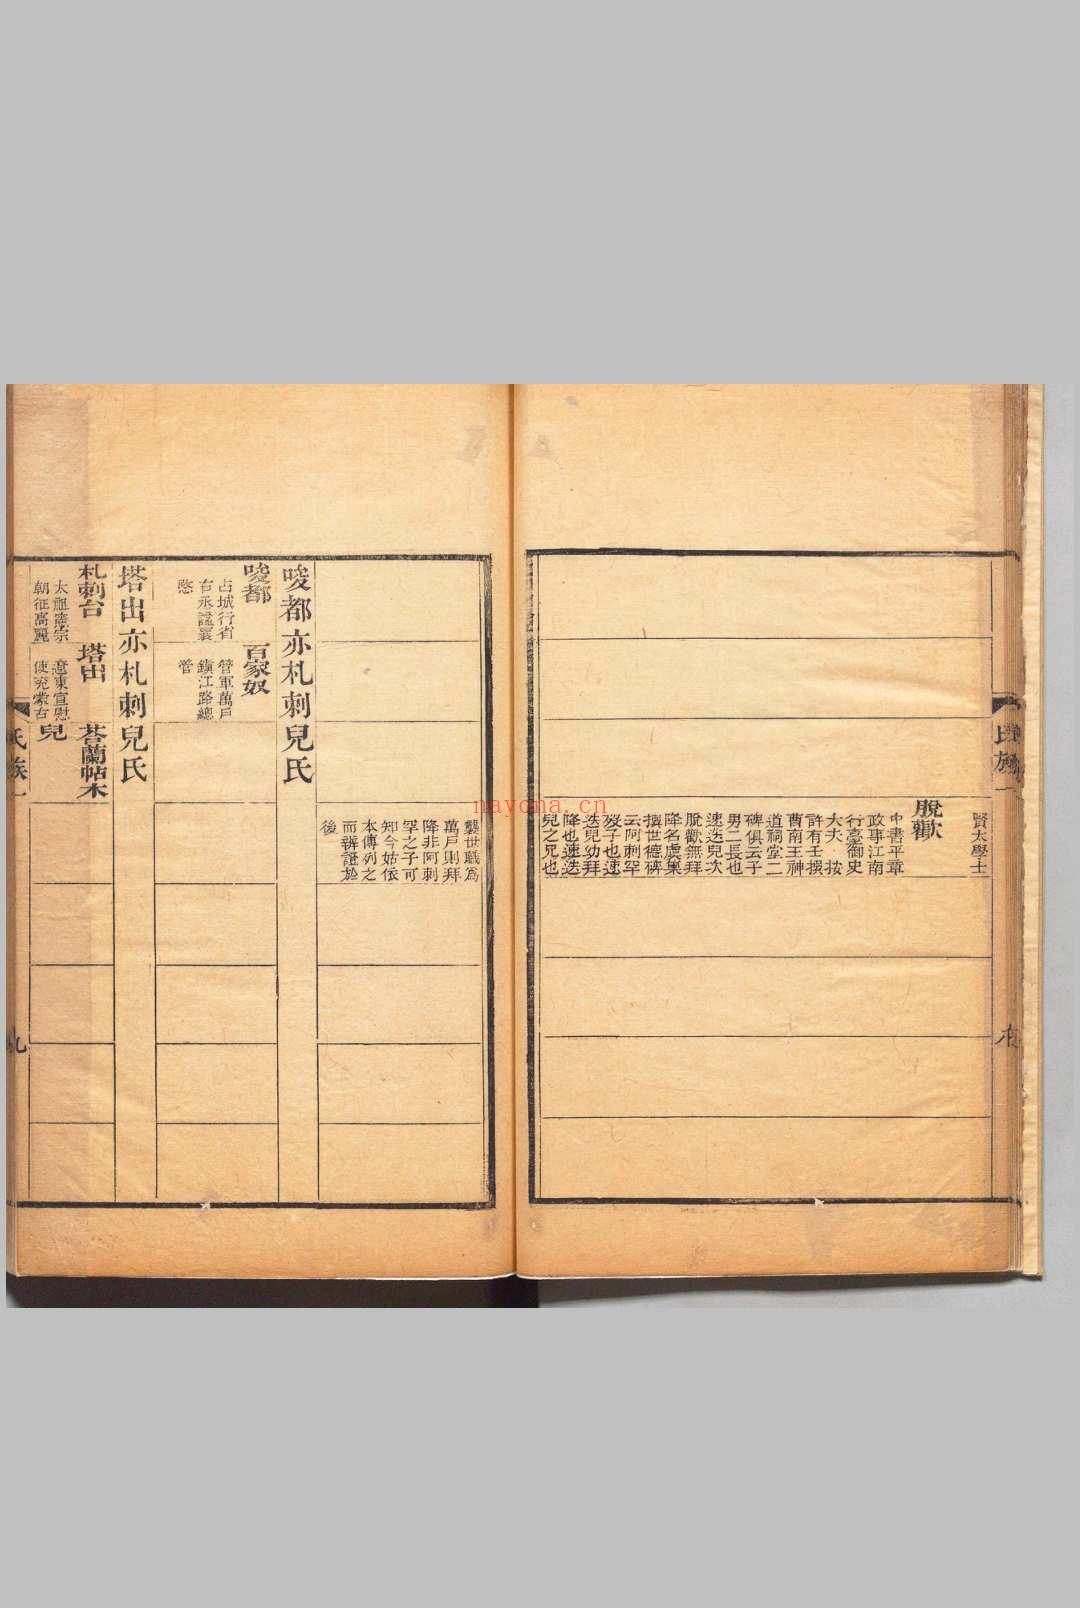 賢大學士
脫歡
中書平章
政事江南
行臺御史
大夫 按
許有壬撰
曹南王神
道祠堂二
碑俱云子
男二長也
速迭兒次
脫歡無拜
降名虞集
撰世德碑
云阿剌罕
歿子也速
迭兒幼拜
降也速迭
兒之兄也
氏族一
襲世職爲
萬戶則拜
降非阿剌
罕之子可
知今姑依
本傳列之
而辨證於
後
唆都亦札剌兒氏
唆都
占城行省
右丞諡襄
愍
百家奴
管軍萬戶
鎮江路總
管
塔出亦札剌兒氏
札剌台
太祖憲宗
朝征高麗
塔出
遼東宣慰
使充蒙古
荅蘭帖木
兒
氏族一
九
nayona.cn